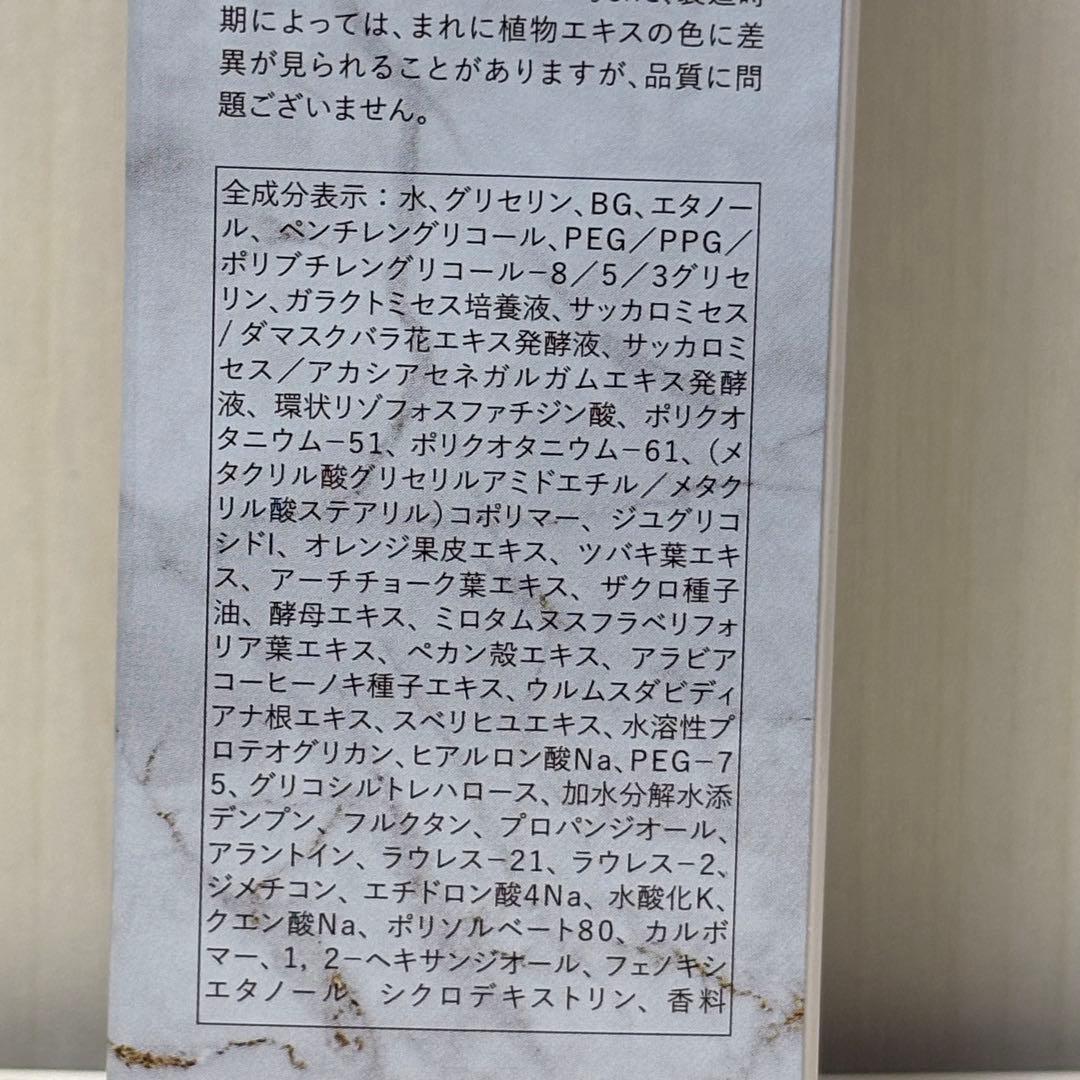 期によっては、まれに植物エキスの色に差
異が見られることがありますが、品質に問
題ございません。
全成分表示：水、グリセリン、BG、エタノー
ル、ペンチレングリコール、PEG／PPG／
ポリブチレングリコール−8／5／3グリセ
リン、ガラクトミセス培養液、サッカロミセス
/ダマスクバラ花エキス発酵液、サッカロミ
セス／アカシアセネガルガムエキス発酵
液、環状リゾフォスファチジン酸、ポリクオ
タニウム−51、ポリクオタニウム−61、（メ
タクリル酸グリセリルアミドエチル／メタク
リル酸ステアリル）コポリマー、ジユグリコ
シドI、オレンジ果皮エキス、ツバキ葉エキ
ス、アーチチョーク葉エキス、ザクロ種子
油、酵母エキス、ミロタムヌスフラベリフォ
リア葉エキス、ペカン殻エキス、アラビア
コーヒーノキ種子エキス、ウルムスダビディ
アナ根エキス、スベリヒユエキス、水溶性プ
ロテオグリカン、ヒアルロン酸Na、PEG−7
5、グリコシルトレハロース、加水分解水添
デンプン、フルクタン、プロパンジオール、
アラントイン、ラウレス−21、ラウレス−2、
ジメチコン、エチドロン酸4Na、水酸化K、
クエン酸Na、ポリソルベート80、カルボ
マー、1，2−ヘキサンジオール、フェノキシ
エタノール、シクロデキストリン、香料